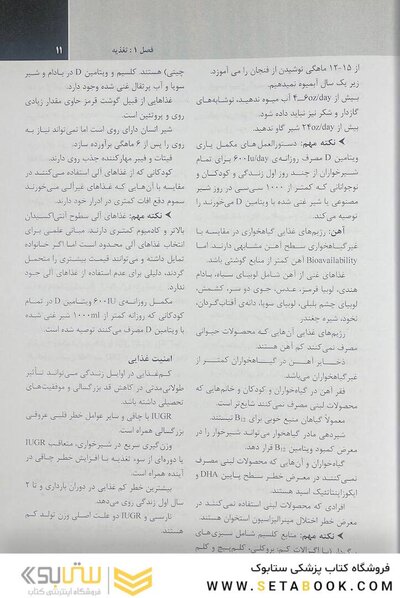 فصل ۱: تغذیه
۱۱
از ۱۵-۱۲ ماهگی نوشیدن از فنجان را می آموزد.
زیر یک سال آبمیوه نمیدهیم.
بیش از ۴-۶oz/day آب میوه ندهید، نوشابه‌های
گازدار و شکر نیز نباید داده شود.
بیش از ۲۴oz/day شیر گاو ندهید.
نکته مهم: دستورالعمل‌های مکمل یاری
ویتامین D مصرف روزانه‌ی ۶۰۰Iu/day برای تمام
شیرخواران از چند روز اول زندگی و کودکان و
نوجوانانی که کمتر از ۱۰۰۰ سی‌سی در روز شیر
مصنوعی یا شیر غنی شده با ویتامین D می‌خورند را
توصیه می‌کند.
آهن: رژیم‌های غذایی گیاهخواری در مقایسه با
غیرگیاهخواری سطح آهن مشابهی دارند. اما
Bioavailability آهن کمتر از منابع گوشتی باشد.
غذاهای غنی از آهن شامل لوبیای سیاه، بادام
هندی، لوبیا قرمز، عدس، جوی دو سر، کشمش،
لوبیای چشم بلبلی، لوبیای سویا، دانه‌ی آفتاب‌گردان،
نخود، شیره چغندر
رژیم‌های غذایی آن‌هایی که محصولات حیوانی
مصرف نمی‌کنند کم آهن هستند.
ذخایر آهن در گیاهخواران کمتر از
غیرگیاهخواران می‌باشد.
فقر آهن در گیاه‌خواران و کودکان و خانم‌هایی که
محصولات لبنی مصرف نمی‌کنند شایع‌تر است.
معمولاً گیاهان منبع خوبی برای B12 نیستند.
شیردهی مادر گیاهخوار می‌تواند شیرخوار را در
معرض کمبود ویتامین B12 قرار دهد.
گیاه‌خواران و آن‌هایی که محصولات لبنی مصرف
نمی‌کنند در معرض خطر سطح پایین DHA و
ایکوزاپنتانئیک اسید هستند.
افرادی که محصولات لبنی استفاده نمی‌کنند در
معرض خطر اختلال مینرالیزاسیون استخوان هستند.
نکته مهم: منابع کلسیم شامل سبزی‌های
کلم‌پیچ و کلم
چینی) هستند. کلسیم و ویتامین D در بادام و شیر
سویا و آب پرتقال غنی شده وجود دارد.
غذاهایی از قبیل گوشت قرمز حاوی مقدار زیادی
روی و پروتئین است.
شیر انسان دارای روی است اما نمی‌تواند نیاز به
روی را پس از ۶ ماهگی برآورده سازد.
فیتات و فیبر مهارکننده جذب روی دارند.
کودکانی که از غذاهای آلی استفاده می‌کنند در
مقایسه با آن‌هایی که غذاهای غیرآلی می‌خورند
سموم دفع آفات کمتری در ادرار خود دارند.
نکته مهم: غذاهای آلی سطوح آنتی‌اکسیدان
بالاتر و کادمیوم کمتری دارند. مبانی علمی برای
انتخاب غذاهای آلی محدود است اما اگر خانواده
تمایل داشته و می‌توانند قیمت بیشتری را متحمل
گردند، دلیلی برای عدم استفاده از غذاهای آلی وجود
ندارد.
مکمل روزانه‌ی ۶۰۰IU ویتامین D در تمام
کودکانی که روزانه کمتر از ۱۰۰۰ml شیر غنی شده
با ویتامین D مصرف می‌کنند توصیه شده است.
امنیت غذایی
کم‌غذایی در اوایل زندگی می‌تواند تأثیر
طولانی‌مدتی در کاهش قد بزرگسالی و موفقیت‌های
تحصیلی داشته باشد.
IUGR با چاقی و سایر عوامل خطر قلبی عروقی
بزرگسالی همراه است.
وزن‌گیری سریع در شیرخواری، متعاقب IUGR
یا دوره‌ای از سوء تغذیه با افزایش خطر چاقی در
آینده همراه است.
بیشترین خطر کم غذایی در دوران بارداری و تا ۲
سال اول زندگی روی می‌دهد.
نارسی و IUGR دو علت اصلی وزن تولد کم
هستند.
فروشگاه کتاب پزشکی ستابوک
WWW.SETABOOK.COM
ستابوک
فروشگاه اینترنتی کتاب